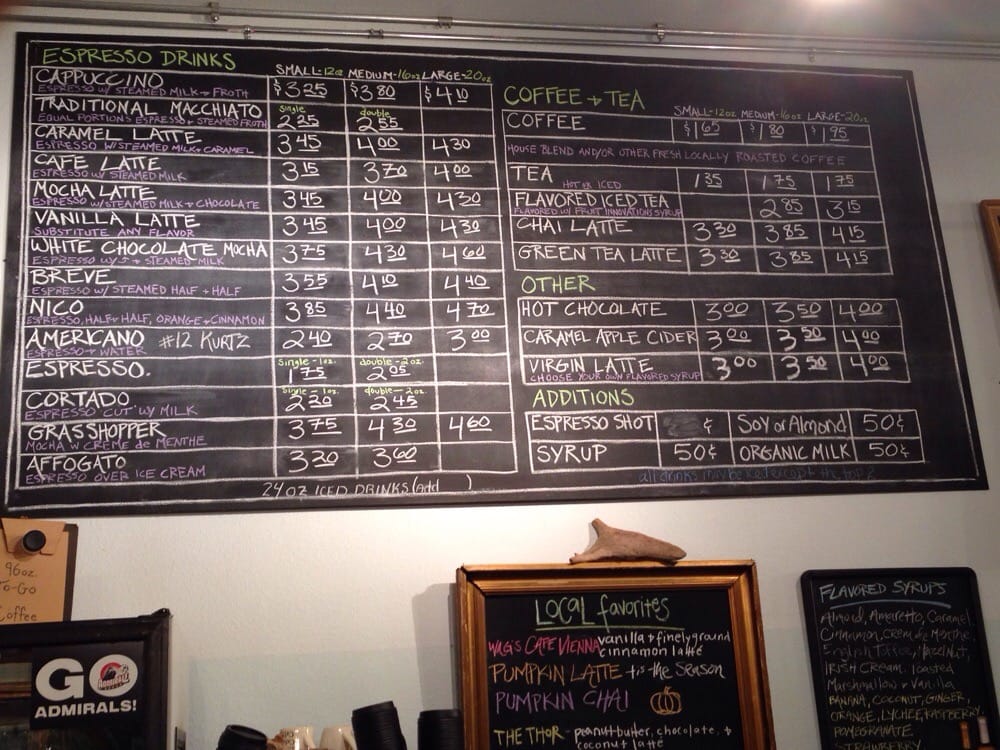 ESPRESSO DRINKS
SMALL-12oz MEDIUM-16oz LARGE-20oz
CAPPUCCINO $3.25 $3.80 $4.10
ESPRESSO w/ STEAMED MILK + FROTH
TRADITIONAL MACCHIATO single 2.25 double 2.55
EQUAL PORTIONS ESPRESSO + STEAMED FROTH
CARAMEL LATTE 3.45 4.00 4.30
ESPRESSO W/STEAMED MILK + CARAMEL
CAFE LATTE 3.15 3.70 4.00
ESPRESSO w/ STEAMED MILK
MOCHA LATTE 3.45 4.00 4.30
ESPRESSO w/STEAMED MILK + CHOCOLATE
VANILLA LATTE 3.45 4.00 4.30
SUBSTITUTE ANY FLAVOR
WHITE CHOCOLATE MOCHA 3.75 4.30 4.60
ESPRESSO w/ + STEAMED MILK
BREVE 3.55 4.10 4.40
ESPRESSO w/ STEAMED HALF + HALF
NICO 3.85 4.40 4.70
ESPRESSO, HALF + HALF, ORANGE + CINNAMON
AMERICANO #12 KURTZ 2.40 2.70 3.00
ESPRESSO + WATER
ESPRESSO. single-1oz. 1.75 double-2oz. 2.05
CORTADO single-1oz. 2.20 double-2oz. 2.45
ESPRESSO "CUT" W/ MILK
GRASSHOPPER 3.75 4.30 4.60
MOCHA W CRÈME de MENTHE
AFFOGATO 3.20 3.60
ESPRESSO OVER ICE CREAM
24 OZ ICED DRINKS (add )
COFFEE + TEA
SMALL-12oz MEDIUM-16oz LARGE-20oz
COFFEE $1.65 $1.80 $1.95
HOUSE BLEND AND/OR OTHER FRESH LOCALLY ROASTED COFFEE
TEA 1.35 1.75 1.75
HOT OR ICED
FLAVORED ICED TEA 2.85 3.15
FLAVORED W/ FRUIT INNOVATIONS SYRUP
CHAI LATTE 3.30 3.85 4.15
GREEN TEA LATTE 3.30 3.85 4.15
OTHER
HOT CHOCOLATE 3.00 3.50 4.00
CARAMEL APPLE CIDER 3.00 3.50 4.00
VIRGIN LATTE 3.00 3.50 4.00
CHOOSE YOUR OWN FLAVORED SYRUP
ADDITIONS
ESPRESSO SHOT ¢ SOY or Almond 50¢
SYRUP 50¢ ORGANIC MILK 50¢
all drinks may be iced except the
96oz.
To-Go
Coffee
GO
ADMIRALS!
LOCAL favorites
WAG'S CAFE VIENNA vanilla + finely ground
cinnamon latte
PUMPKIN LATTE tis the Season
PUMPKIN CHAI
THE THOR - peanut butter, chocolate, +
coconut latte
FLAVORED SYRUPS
Almond, Amaretto, Caramel
Cinnamon, Crem de Menthe
English Toffee, Hazelnut,
IRISH CREAM, toasted
Marshmallow + Vanilla
BANANA, COCONUT, GINGER
ORANGE, LYCHEE, RASPBERRY,
POMEGRANATE